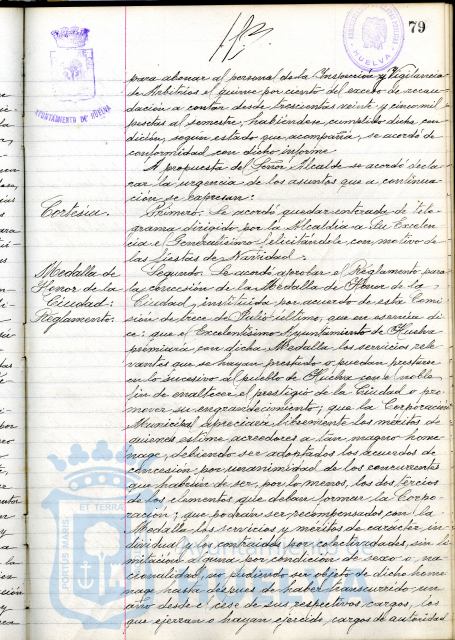 79
AYUNTAMIENTO DE HUELVA
HUELVA
para abonar al personal de la Inspección y Vigilancia
de Arbitrios el quince por ciento del exceso de recau-
dación a contar desde trescientas veinte y cinco mil
pesetas al semestre, habiéndose cumplido dicha con-
dición, según estado que acompaña, se acordó de
conformidad con dicho informe.
A propuesta del Señor Alcalde se acordó decla-
rar la urgencia de los asuntos que a continua-
ción se expresan:
Cortesía.
Primero. Se acordó quedar enterada de tele-
grama dirigido por la Alcaldía a Su Excelen-
cia el Generalísimo felicitándole con motivo de
las fiestas de Navidad.
Medalla de
Honor de la
Ciudad:
Reglamento.
Segundo. Se acordó aprobar el Reglamento para
la concesión de la Medalla de Honor de la
Ciudad, instituida por acuerdo de esta Comi-
sión de trece de Julio último, que en esencia di-
ce: que el Excelentísimo Ayuntamiento de Huelva
premiará con dicha Medalla los servicios rele-
vantes que se hayan prestado o puedan prestarse
en lo sucesivo al pueblo de Huelva con el noble
fin de enaltecer el prestigio de la Ciudad o pro-
mover su engrandecimiento; que la Corporación
Municipal apreciará libremente los méritos de
quienes estime acreedores a tan magno home-
nage, debiendo ser adoptados los acuerdos de
concesión por unanimidad de los concurrentes
que habrán de ser, por lo menos, los dos tercios
de los elementos que deban formar la Corpo-
ración; que podrán ser recompensados con la
Medalla los servicios y méritos de carácter in-
dividual o los contraidos por colectividades, sin li-
mitación alguna por condición de sexo o na-
cionalidad, no pudiendo ser objeto de dicho home-
nage hasta después de haber transcurrido un
año desde el cese de sus respectivos cargos, los
que ejerzan o hayan ejercido cargos de autoridad
PORTUS MARIS
ET TERRA
Ayuntamiento de